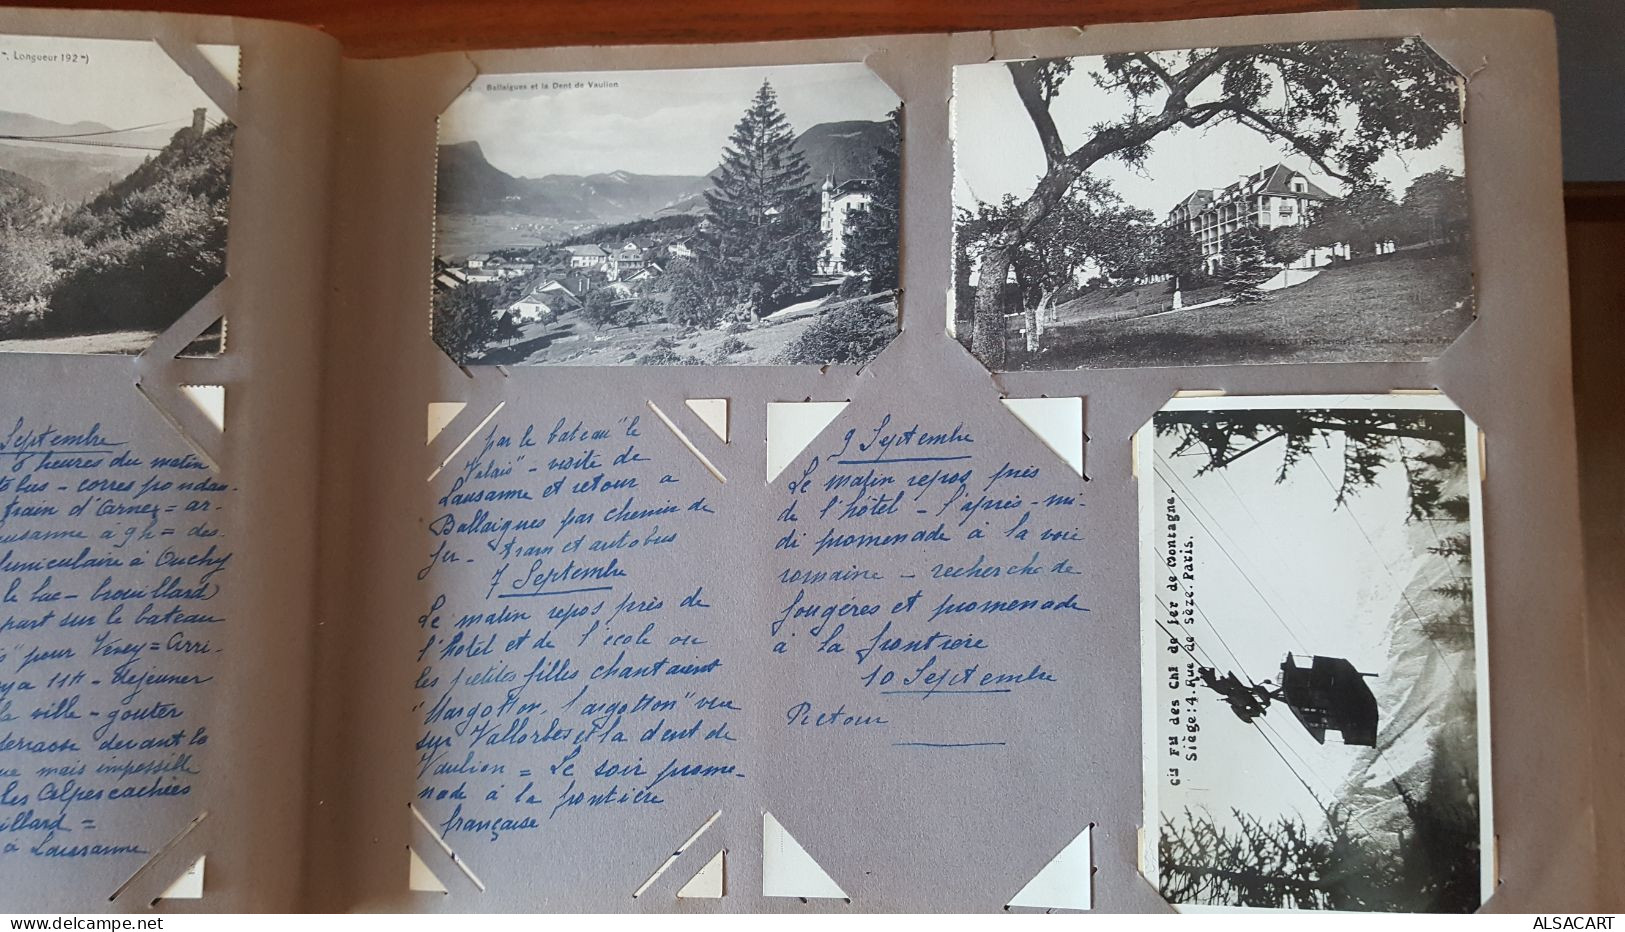 Longueur 192 m)
Septembre
8 heures du matin
bus - correspondan-
train d'Arnex = ar-
usanne à 9h = des-
funiculaire à Ouchy
le lac - brouillard)
part sur le bateau
" pour Vevey = Arri-
y a 11h - déjeuner
la ville - gouter
terrasse devant le
ue mais impossible
les Alpes cachées
illard =
à Lausanne
Ballaigues et la Dent de Vaulion
par le bateau "le
Valais" - visite de
Lausanne et retour a
Ballaigues par chemin de
fer - train et autobus
7 Septembre
Le matin repos près de
l'hôtel et de l'école ou
les petites filles chantaient
"Margoton, Margotton" vue
sur Vallorbes et la dent de
Vaulion = Le soir prome-
nade à la frontière
française
9 Septembre
Le matin repos près
de l'hôtel - l'après-mi-
di promenade à la voie
romaine - recherche de
fougères et promenade
à la frontière
10 Septembre
Retour
Cie Fse des Chs de fer de Montagne.
Siège: 4. Rue de Sèze. Paris.
ALSACART